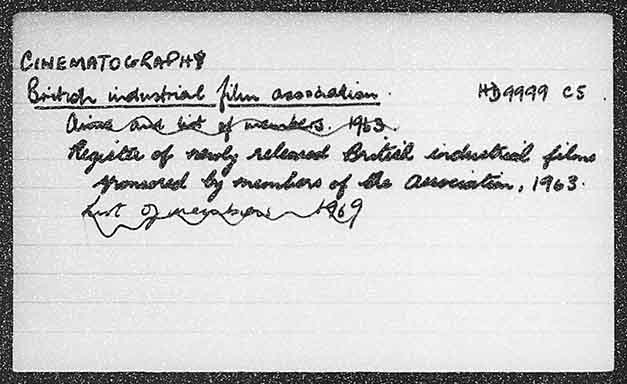 CINEMATOGRAPHY
British industrial film association. HD9999 C5
Aims and list of members. 1963.
Register of newly released British industrial films
sponsored by members of the Association, 1963.
List of members 1969